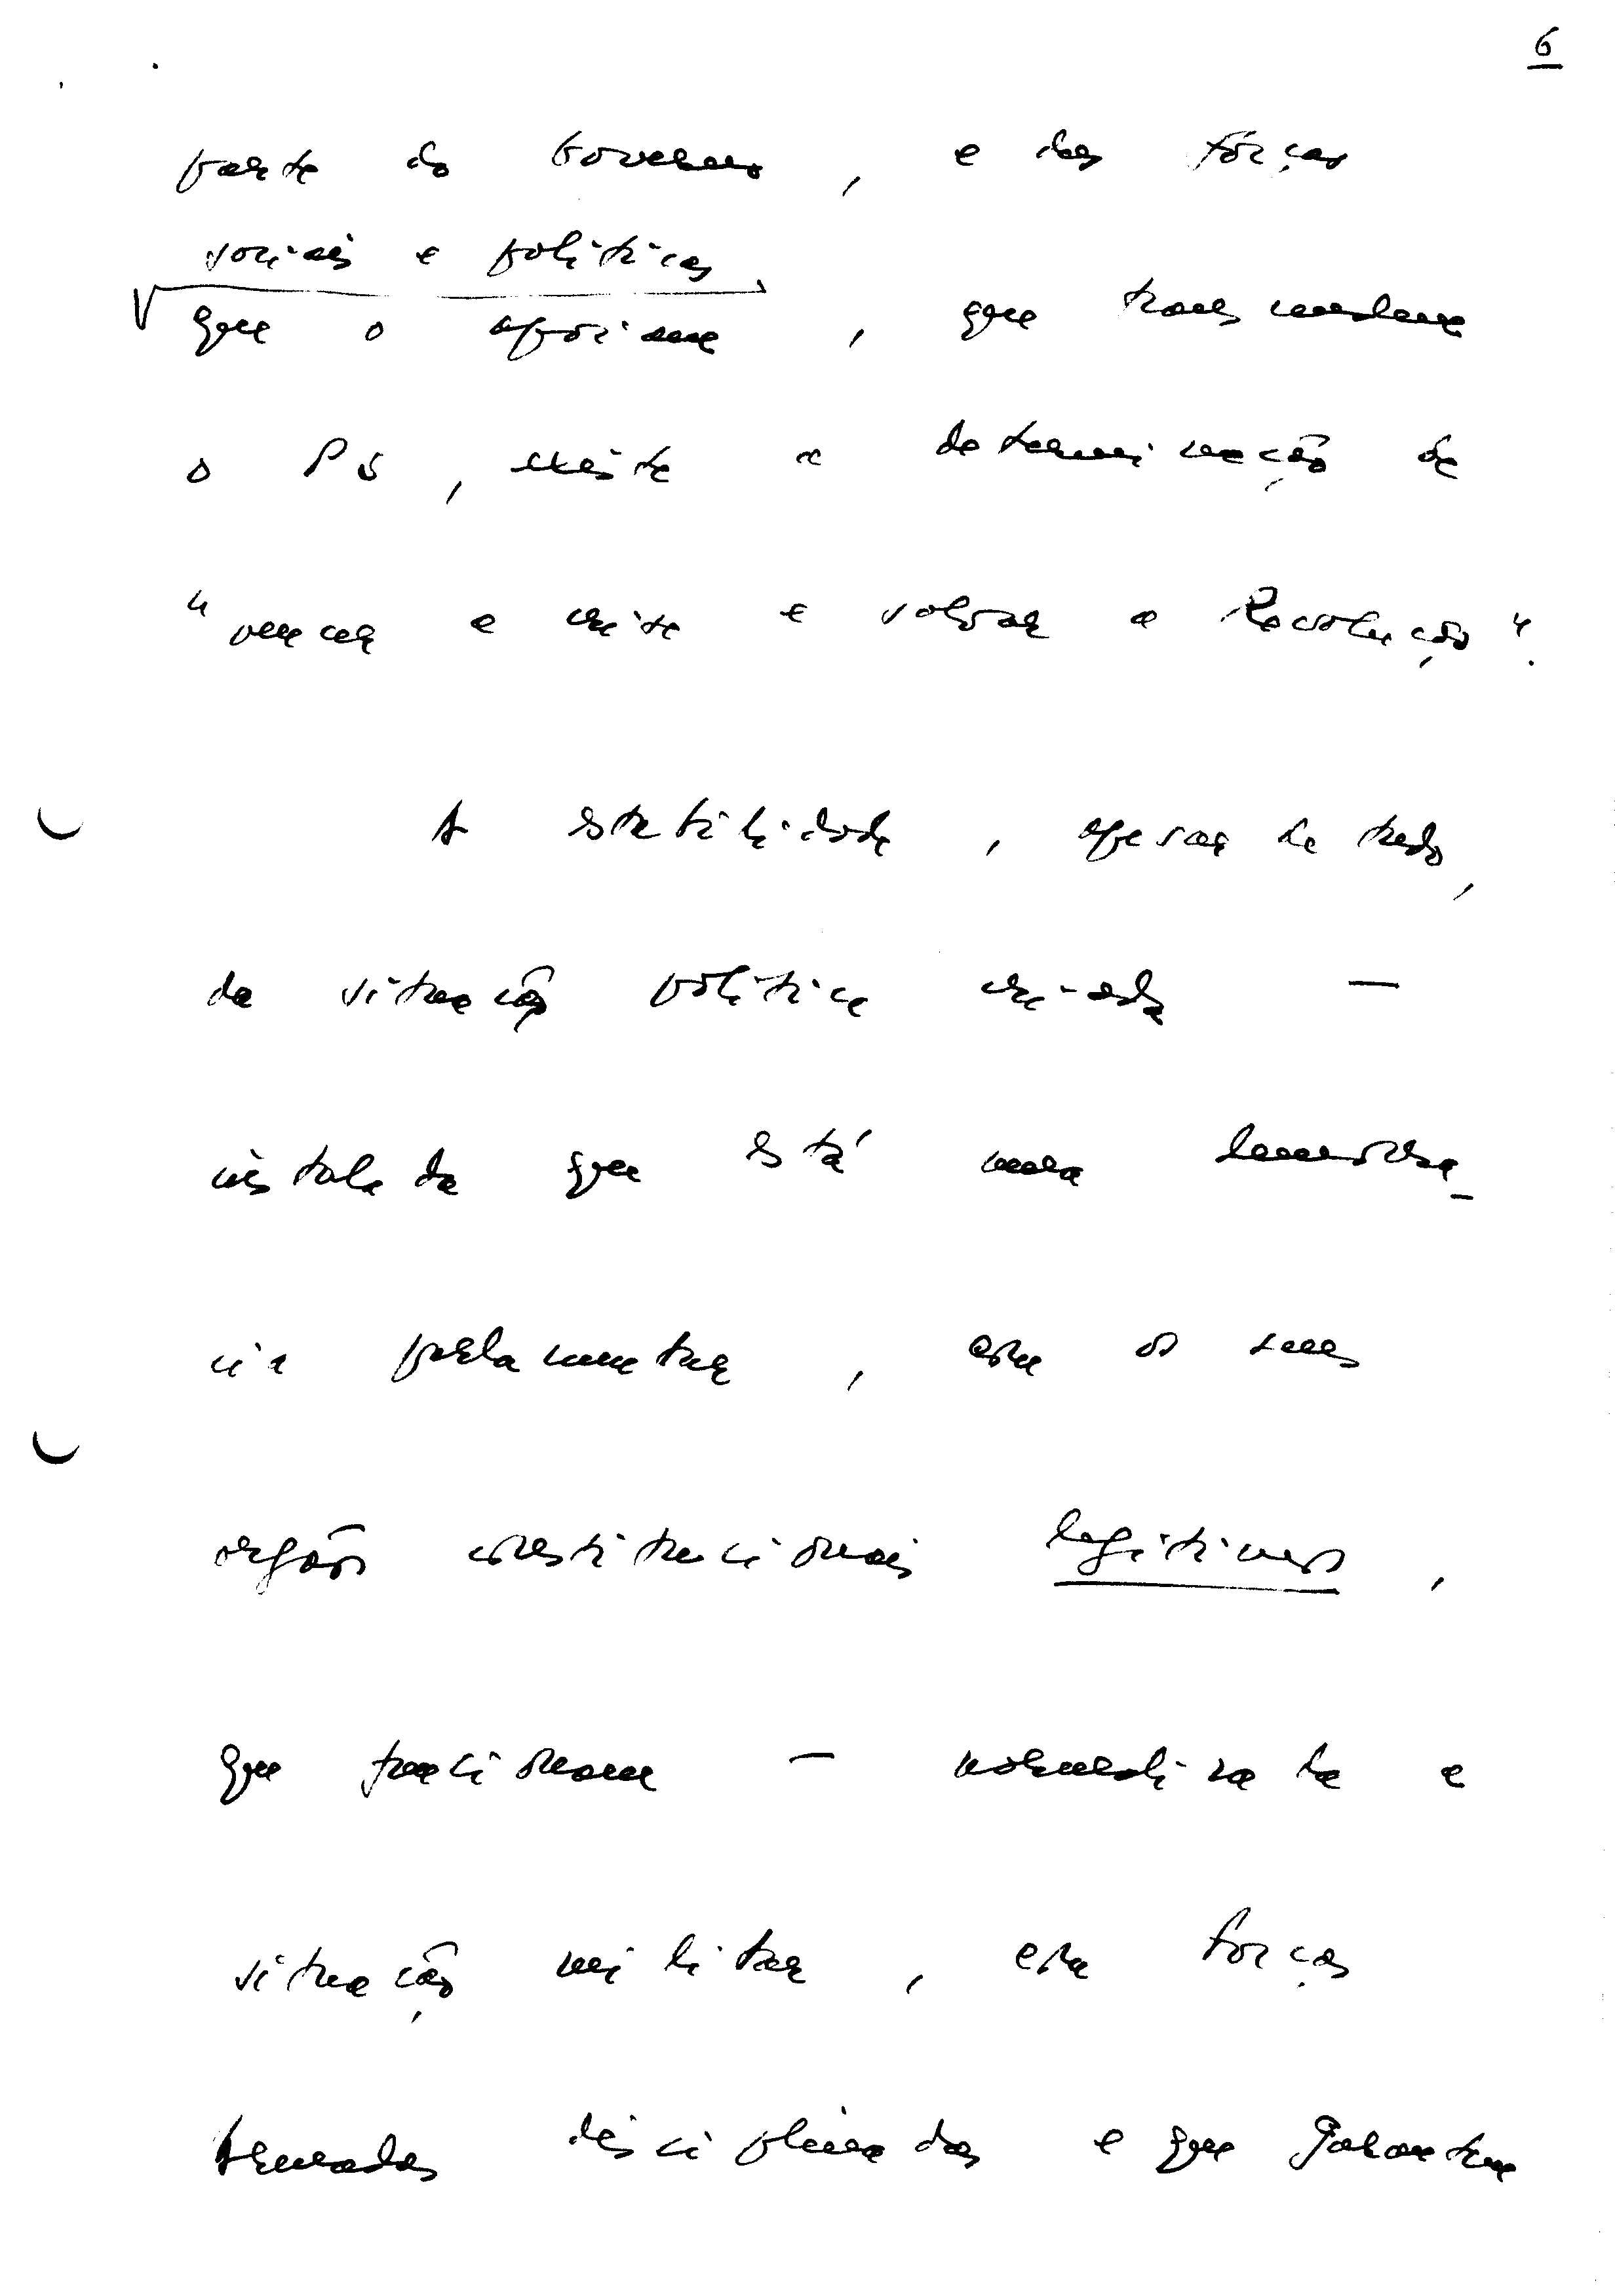 6
parte do Governo, e das forças
sociais e políticas
que o apoiam, que transcendem
o PS, existe a determinação de
"vencer a crise e salvar a Revolução".
A estabilidade, apesar de tudo,
da situação política criada —
instalada que está uma democra-
cia parlamentar, com os seus
orgãos constitucionais legítimos,
que funcionam — normalizada a
situação militar, com Forças
Armadas disciplinadas e que garantem